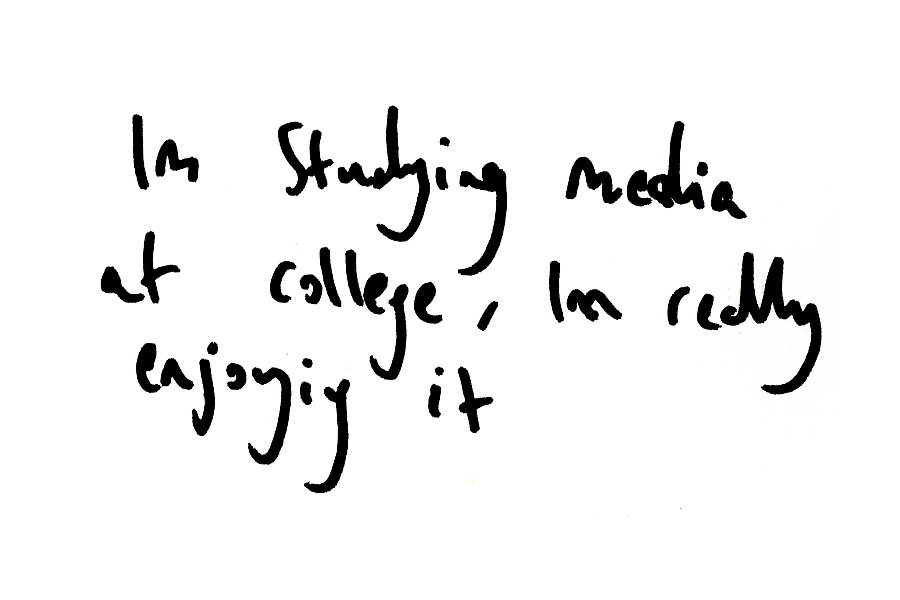 Im Studying media
at college, Im really
enjoying it